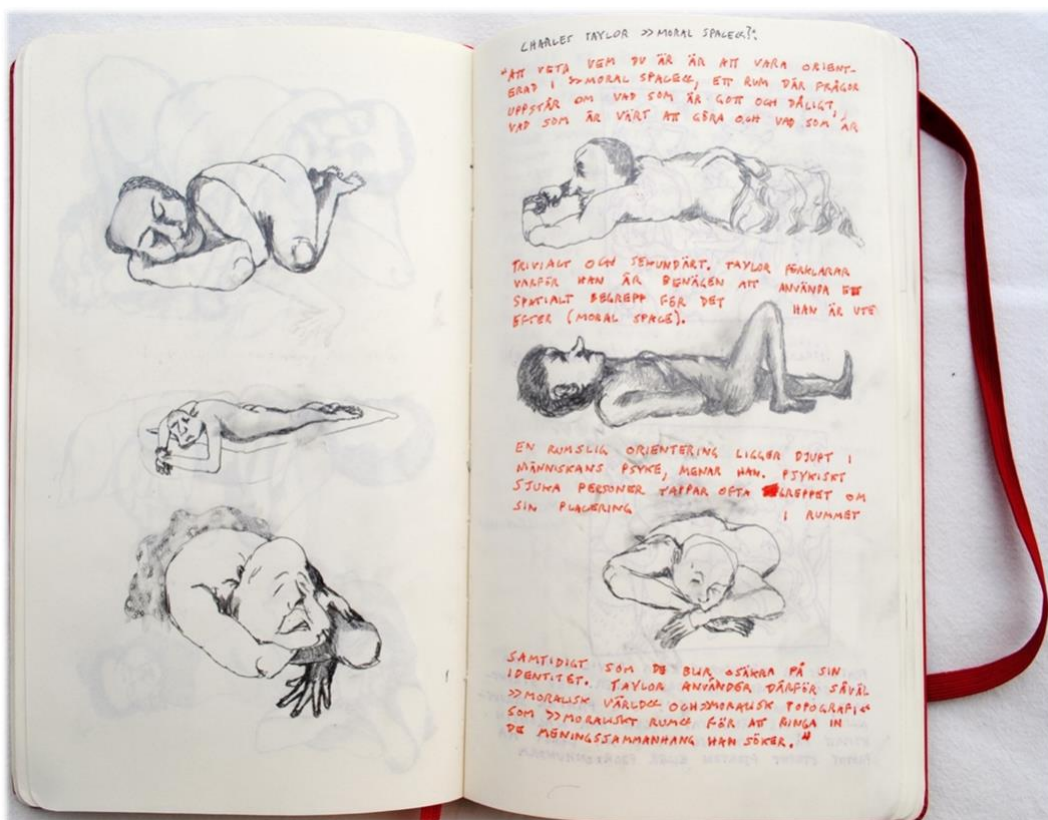 CHARLES TAYLOR »MORAL SPACE«:
"ATT VETA VEM DU ÄR ÄR ATT VARA ORIENT-
ERAD I »MORAL SPACE«, ETT RUM DÄR FRÅGOR
UPPSTÅR OM VAD SOM ÄR GOTT OCH DÅLIGT,
VAD SOM ÄR VÄRT ATT GÖRA OCH VAD SOM ÄR
TRIVIALT OCH SEKUNDÄRT. TAYLOR FÖRKLARAR
VARFÖR HAN ÄR BENÄGEN ATT ANVÄNDA ETT
SPATIALT BEGREPP FÖR DET HAN ÄR UTE
EFTER (MORAL SPACE).
EN RUMSLIG ORIENTERING LIGGER DJUPT I
MÄNNISKANS PSYKE, MENAR HAN. PSYKISKT
SJUKA PERSONER TAPPAR OFTA GREPPET OM
SIN PLACERING I RUMMET
SAMTIDIGT SOM DE BLIR OSÄKRA PÅ SIN
IDENTITET. TAYLOR ANVÄNDER DÄRFÖR SÅVÄL
»MORALISK VÄRLD« OCH »MORALISK TOPOGRAFI«
SOM »MORALISKT RUM« FÖR ATT RINGA IN
DE MENINGSSAMMANHANG HAN SÖKER."